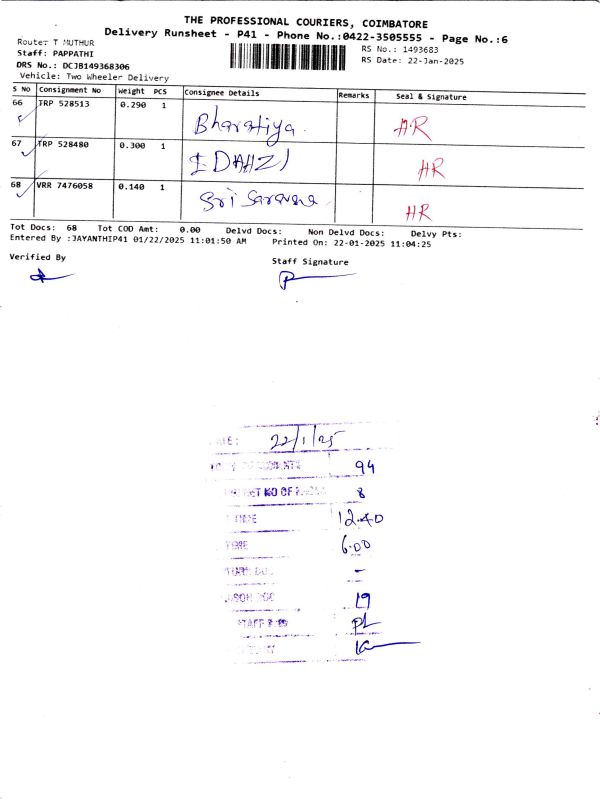 THE PROFESSIONAL COURIERS, COIMBATORE
Delivery Runsheet - P41 - Phone No.:0422-3505555 - Page No.:6
Route: T MUTHUR
Staff: PAPPATHI
DRS No.: DCJB149368306
Vehicle: Two Wheeler Delivery
RS No.: 1493683
RS Date: 22-Jan-2025
S No Consignment No Weight PCS Consignee Details Remarks Seal & Signature
66 TRP 528513 0.290 1 Bharatiya HR
67 TRP 528480 0.300 1 HR
68 VRR 7476058 0.140 1 Sri Saravana HR
Tot Docs: 68 Tot COD Amt: 0.00 Delvd Docs: Non Delvd Docs: Delvy Pts:
Entered By :JAYANTHIP41 01/22/2025 11:01:50 AM Printed On: 22-01-2025 11:04:25
Verified By
Staff Signature
22/1/25
94
NO OF 8
TIME 12.40
TIME 6.00
-
19
STAFF PL